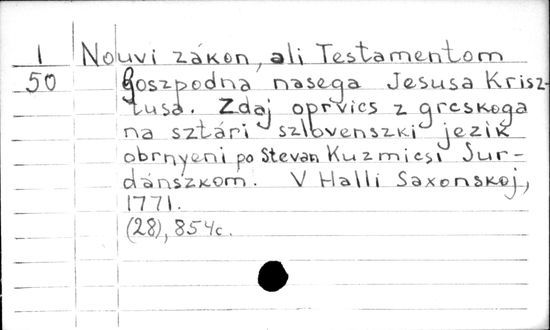 1 Nouvi zákon, ali Testamentom
50 Goszpodna nasega Jesusa Krisz-
tusa. Zdaj oprvics z grcskoga
na sztári szlovenszki jezik
obrnyeni po Stevan Kuzmicsi Sur-
dánszkom. V Halli Saxonskoj,
1771.
(28), 854c.